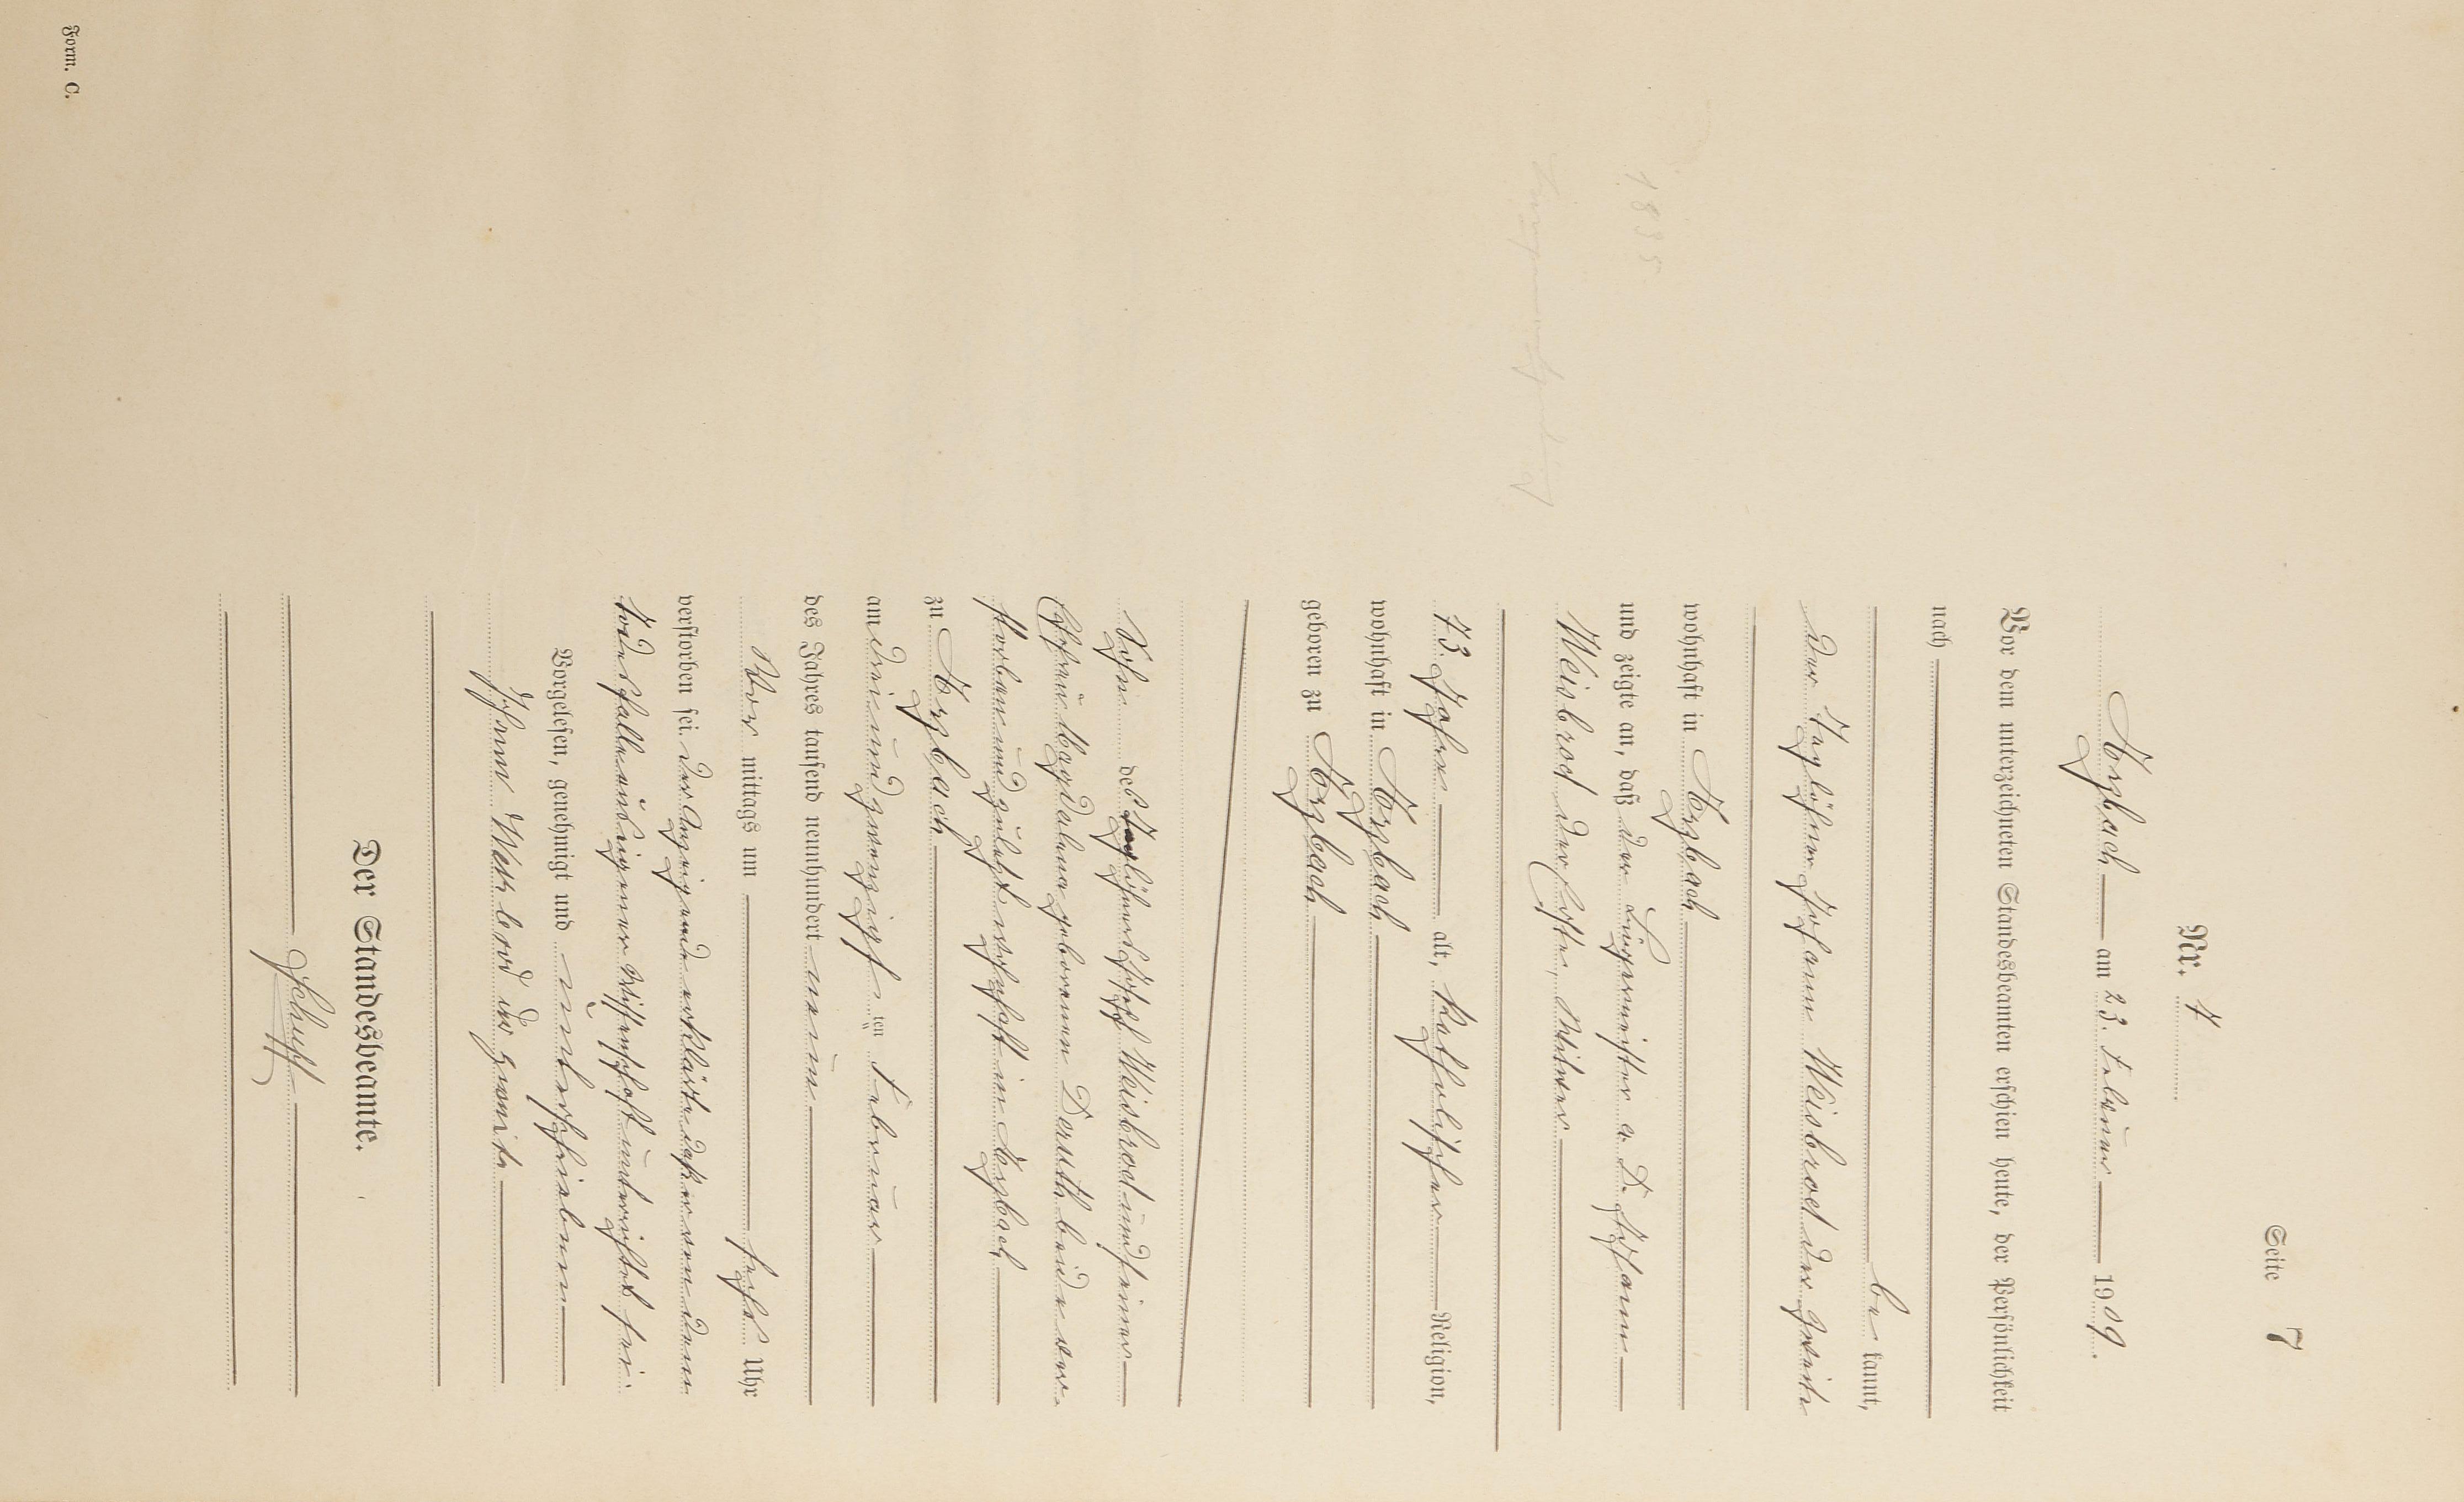 Seite 7
Nr. 7
Arzbach am 23. Februar 1909.
Vor dem unterzeichneten Standesbeamten erschien heute, der Persönlichkeit
nach
be kannt,
der Taglöhner Johann Weisbrod der zweite
wohnhaft in Arzbach
und zeigte an, daß der Bürgermeister a. D. Johann
Weisbrod der Erste, Witwer
73 Jahre alt, katholischer Religion,
wohnhaft in Arzbach
geboren zu Arzbach
Sohn des Taglöhners Josef Weisbrod und seiner
Ehefrau Magdalena geborenen Deruth beide ver-
storben und zuletzt wohnhaft in Arzbach
zu Arzbach
am drei und zwanzigsten Februar
des Jahres tausend neunhundert neun
Vor mittags um sechs Uhr
verstorben sei. Der Anzeigende erklärte daß er von dem
Todesfalle aus eigener Wissenschaft unterrichtet sei.
Vorgelesen, genehmigt und unterschrieben
Johann Weisbrod der zweite
Der Standesbeamte.
Schupp
1835
Form. C.